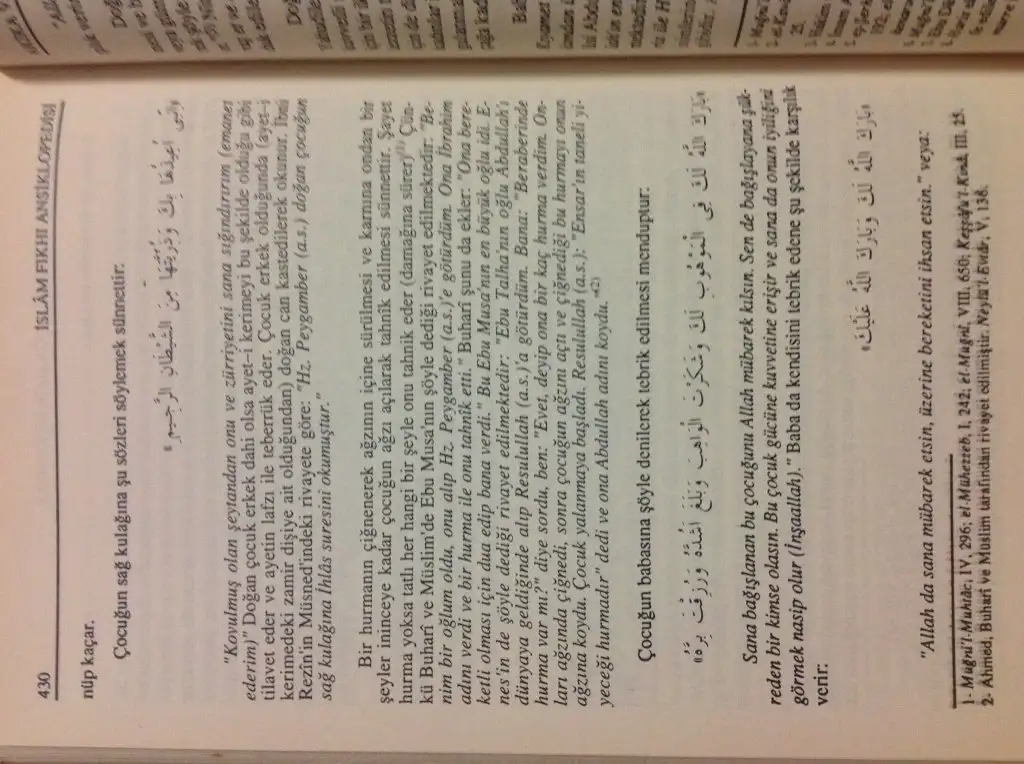 430 İSLÂM FIKHI ANSİKLOPEDİSİ
nüp kaçar.
Çocuğun sağ kulağına şu sözleri söylemek sünnettir:
وَإِنِّي أُعِيذُهَا بِكَ وَذُرِّيَّتَهَا مِنَ الشَّيْطَانِ الرَّجِيمِ
"Kovulmuş olan şeytandan onu ve zürriyetini sana sığındırırım (emanet
ederim)" Doğan çocuk erkek dahi olsa ayet-i kerimeyi bu şekilde olduğu gibi
tilavet eder ve ayetin lafzı ile teberrük eder. Çocuk erkek olduğunda (ayet-i
kerimedeki zamir dişiye ait olduğundan) doğan can kastedilerek okunur. İbni
Rezîn'in Müsned'indeki rivayete göre: "Hz. Peygamber (a.s.) doğan çocuğun
sağ kulağına İhlâs suresini okumuştur."
Bir hurmanın çiğnenerek ağzının içine sürülmesi ve karnına ondan bir
şeyler ininceye kadar çocuğun ağzı açılarak tahnîk edilmesi sünnettir. Şayet
hurma yoksa tatlı her hangi bir şeyle onu tahnik eder (damağına sürer)(1) Çün-
kü Buharî ve Müslim'de Ebu Musa'nın şöyle dediği rivayet edilmektedir: "Be-
nim bir oğlum oldu, onu alıp Hz. Peygamber (a.s.)'e götürdüm. Ona İbrahim
adını verdi ve bir hurma ile onu tahnîk etti." Buharî şunu da ekler: "Ona bere-
ketli olması için dua edip bana verdi." Bu Ebu Musa'nın en büyük oğlu idi. E-
nes'in de şöyle dediği rivayet edilmektedir: "Ebu Talha'nın oğlu Abdullah'ı
dünyaya geldiğinde alıp Resulullah (a.s.)'a götürdüm. Bana: "Beraberinde
hurma var mı?" diye sordu, ben: "Evet, deyip ona bir kaç hurma verdim. On-
ları ağzında çiğnedi, sonra çocuğun ağzını açtı ve çiğnediği bu hurmayı onun
ağzına koydu. Çocuk yalanmaya başladı. Resulullah (a.s.): "Ensar'ın taneli yi-
yeceği hurmadır" dedi ve ona Abdullah adını koydu."(2)
Çocuğun babasına şöyle denilerek tebrik edilmesi menduptur:
«بَارَكَ اللّٰهُ لَكَ فِي الْمَوْهُوبِ لَكَ وَشَكَرْتَ الْوَاهِبَ وَبَلَغَ أَشُدَّهُ وَرُزِقْتَ بِرَّهُ»
Sana bağışlanan bu çocuğunu Allah mübarek kılsın. Sen de bağışlayana şük-
reden bir kimse olasın. Bu çocuk gücüne kuvvetine erişir ve sana da onun iyiliğini
görmek nasip olur (İnşaallah)." Baba da kendisini tebrik edene şu şekilde karşılık
verir:
«بَارَكَ اللّٰهُ لَكَ وَبَارَكَ اللّٰهُ عَلَيْكَ»
"Allah da sana mübarek etsin, üzerine bereketini ihsan etsin." veya:
1- Müğni'l-Muhtâc, IV, 296; el-Mühezzeb, I, 242; el-Muğnî, VIII, 650; Keşşâfu'l-Kınâ, III, 25.
2- Ahmed, Buharî ve Müslim tarafından rivayet edilmiştir. Neylü'l-Evtâr, V, 136.